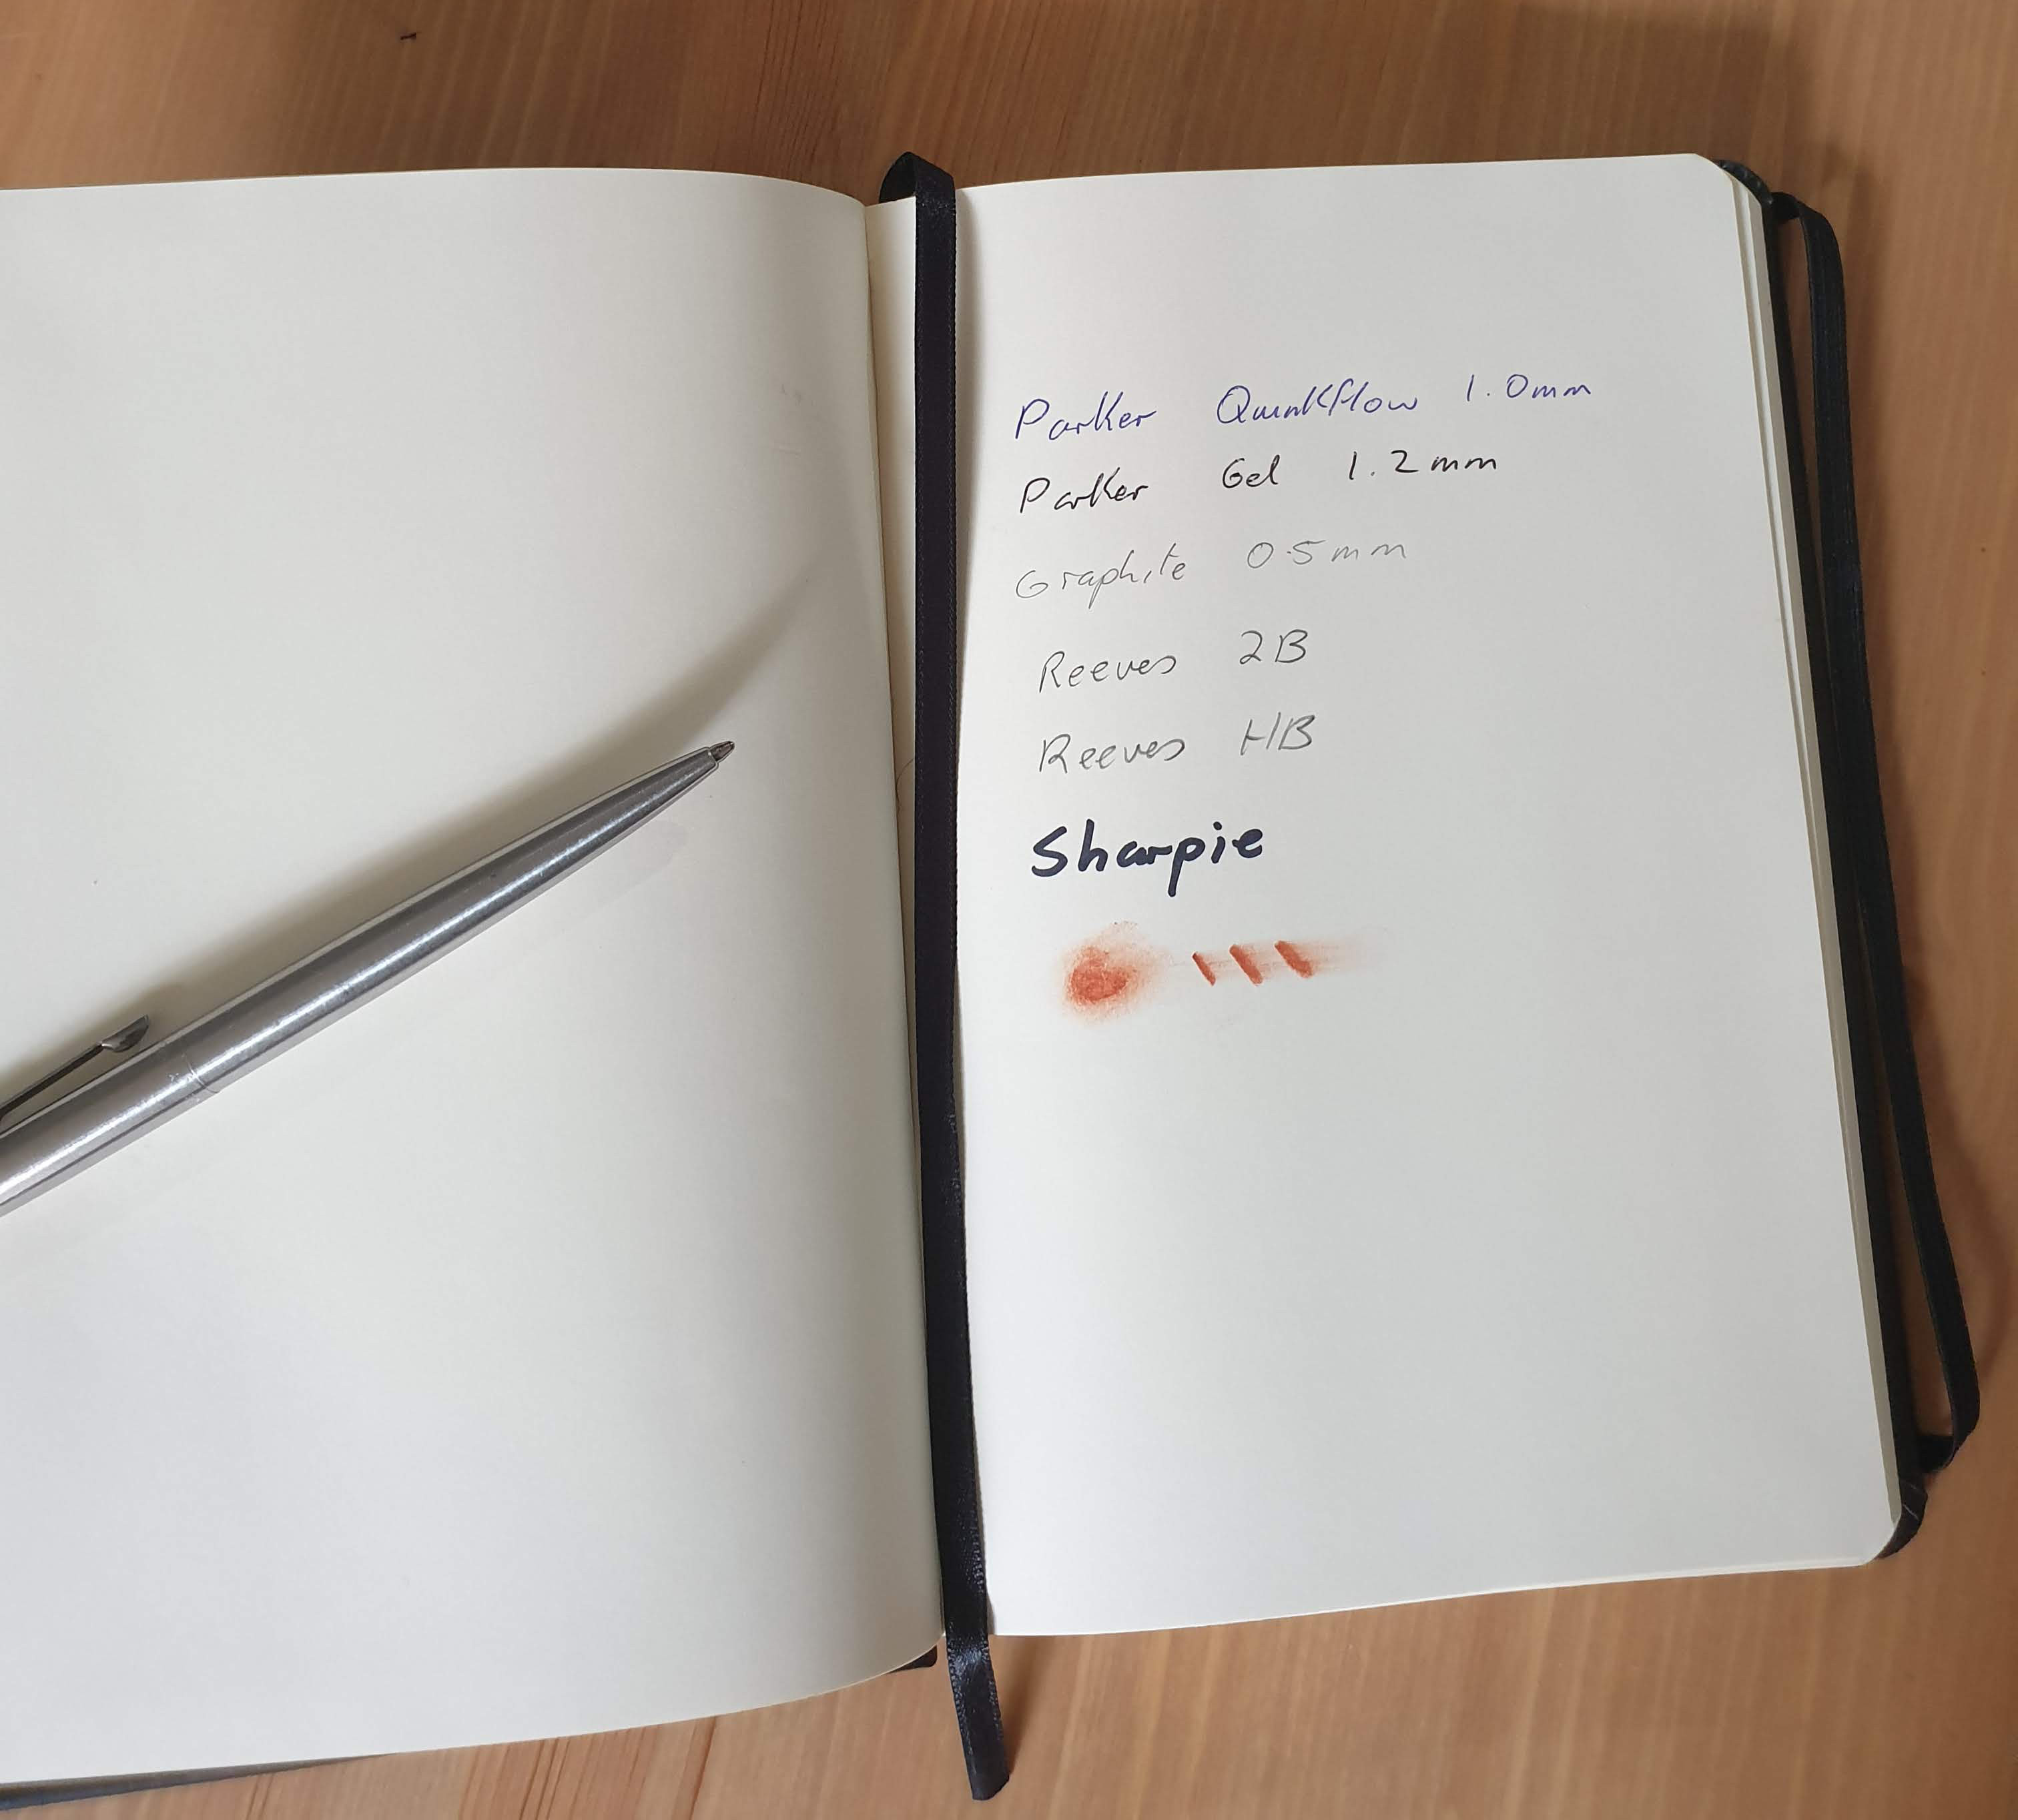 Parker Quinkflow 1.0mm
Parker Gel 1.2mm
Graphite 0.5mm
Reeves 2B
Reeves HB
Sharpie